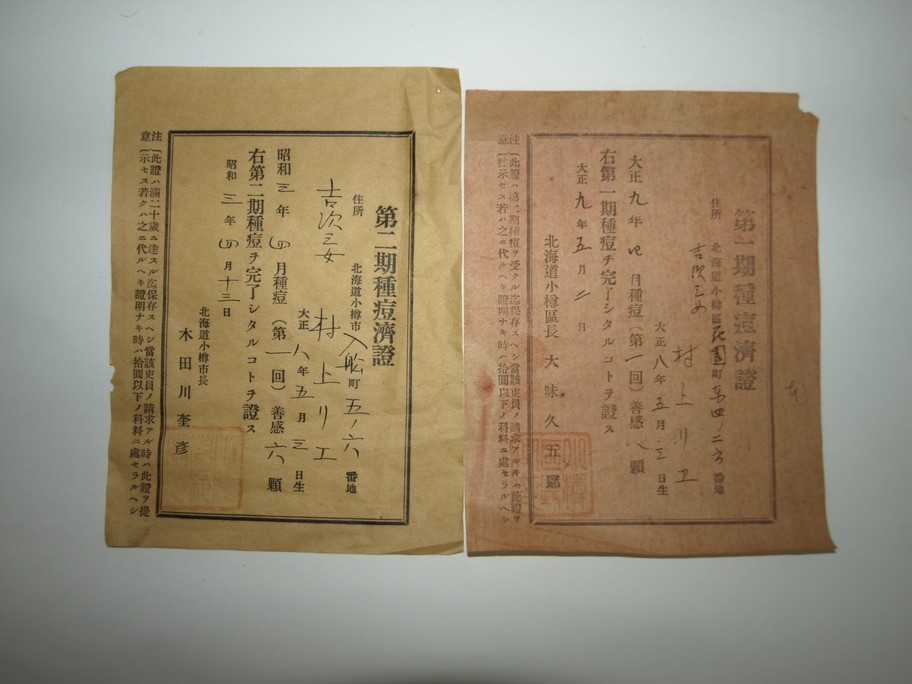 第一期種痘濟證
住所 北海道小樽區花園町東四ノ二六番地
吉次三女 村上リエ
大正八年五月三日生
大正九年四月種痘(第一回)善感八顆
右第一期種痘ヲ完了シタルコトヲ證ス
大正九年五月 日
北海道小樽區長 大味久五郎
注意
此證ハ第二期種痘ヲ受クル迄保存スヘシ當該吏員ノ請求アル時ハ此證ヲ提
示セス若クハ之ニ代ルヘキ證明ナキ時ハ拾圓以下ノ科料ニ處セラルヘシ
第二期種痘濟證
住所 北海道小樽市入舩町五ノ六番地
吉次三女 村上リエ
大正八年五月三日生
昭和三年四月種痘(第一回)善感六顆
右第二期種痘ヲ完了シタルコトヲ證ス
昭和三年四月十三日
北海道小樽市長
木田川奎彦
注意
此證ハ滿二十歲ニ達スル迄保存スヘシ當該吏員ノ請求アル時ハ此證ヲ提
示セス若クハ之ニ代ルヘキ證明ナキ時ハ拾圓以下ノ科料ニ處セラルヘシ